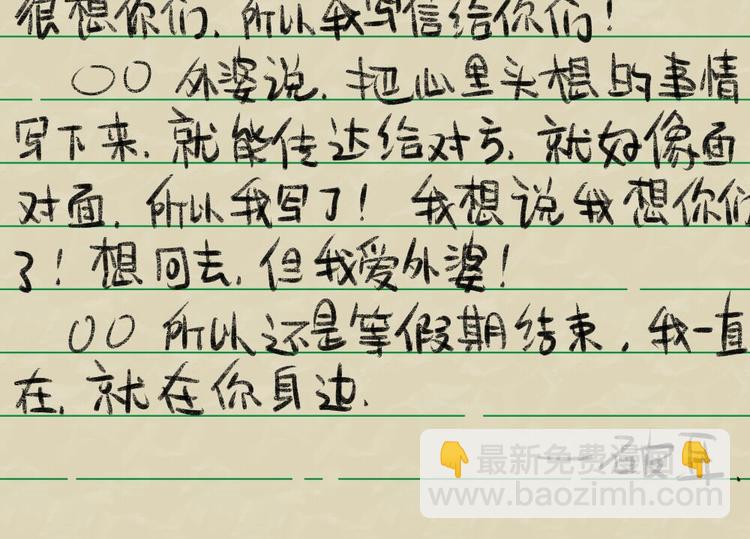 很想你们，所以我写信给你们！
○○ 外婆说，把心里头想的事情
写下来，就能传达给对方，就好像面
对面，所以我写了！我想说我想你们
了！想回去，但我爱外婆！
○○ 所以还是等假期结束，我一直
在，就在你身边.
最新免费漫画
www.baozimh.com